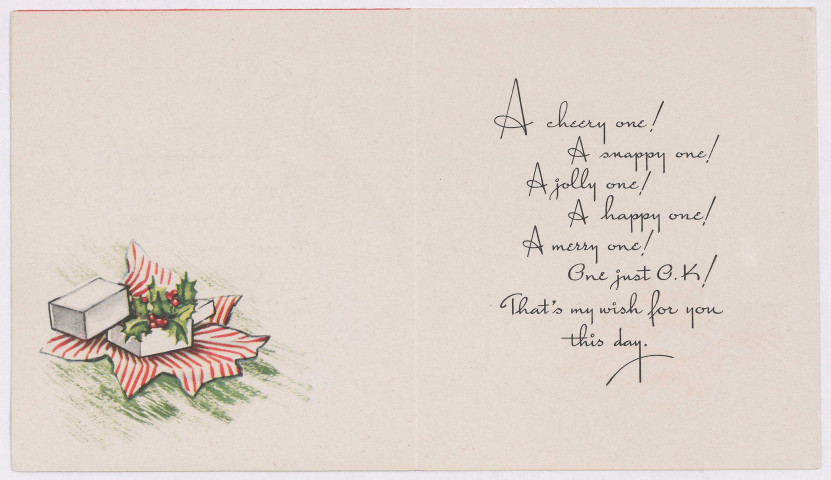 A cheery one!
A snappy one!
A jolly one!
A happy one!
A merry one!
One just O.K!
That's my wish for you
this day.